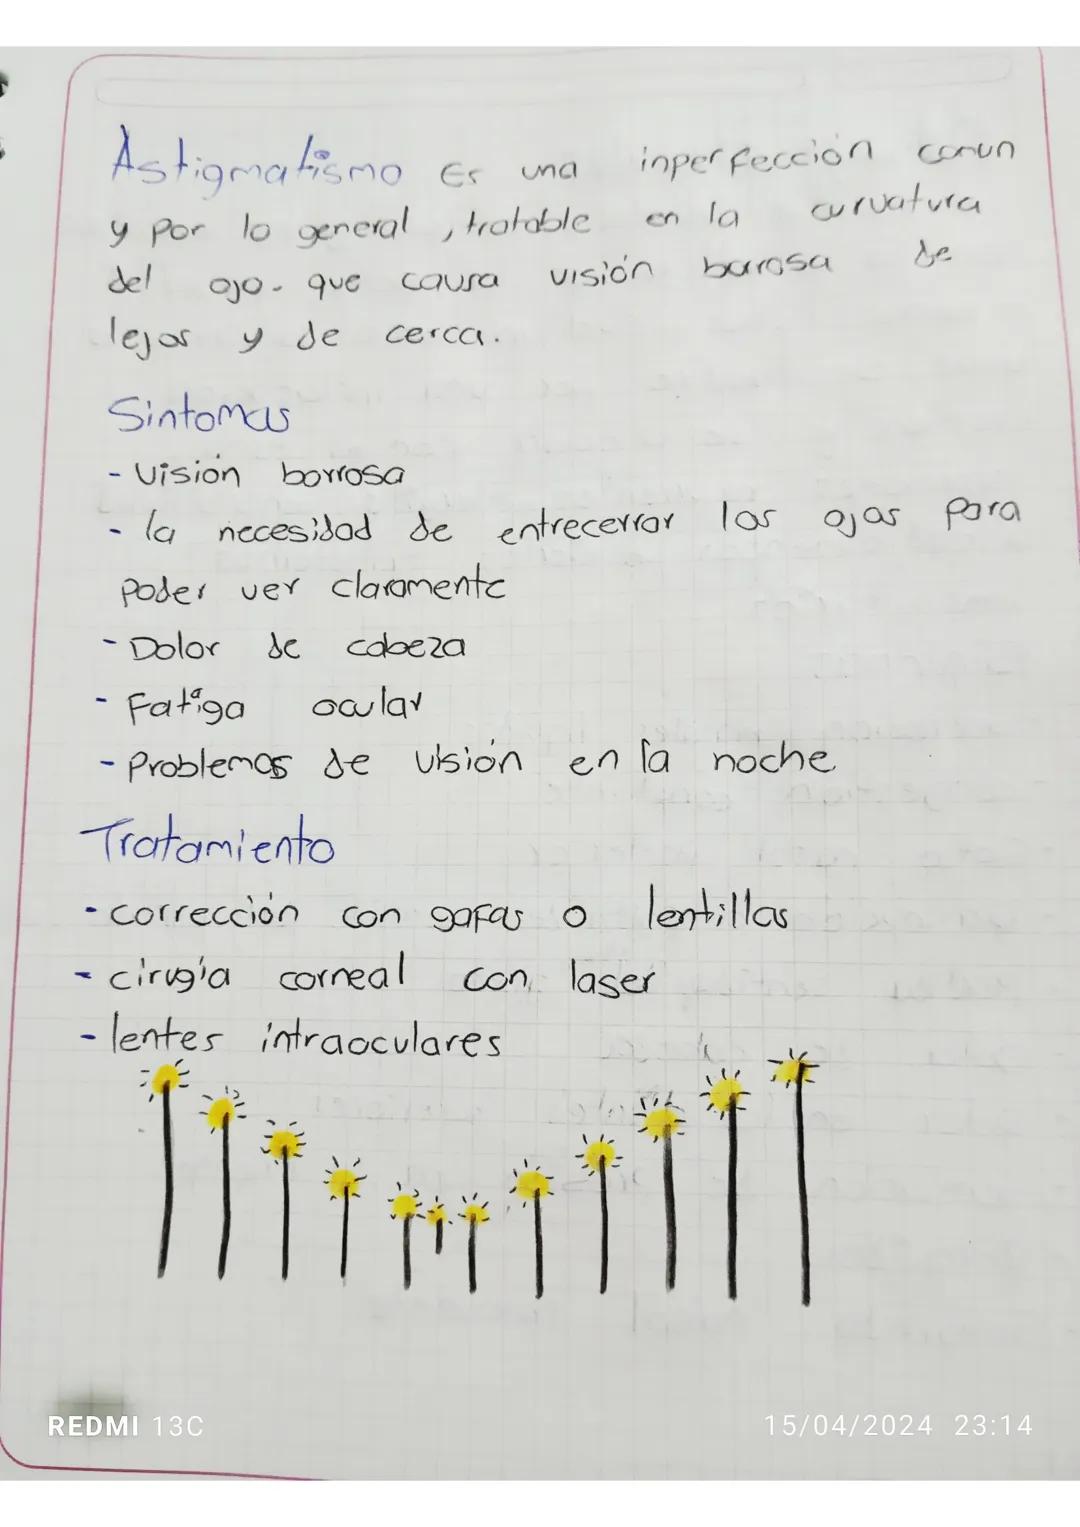 Astigmatismo Es una inperfección comun
y por lo general, tratable en la curvatura
del ojo. que causa visión borrosa de
lejos y de cerca.
Sintomas
- Visión borrosa
- la necesidad de entrecerrar los ojos para
poder ver claramente
- Dolor de cabeza
- Fatiga ocular
- Problemas de visión en la noche
Tratamiento
- corrección con gafas o lentillas
- cirugía corneal con laser
- lentes intraoculares
REDMI 13C
15/04/2024 23:14